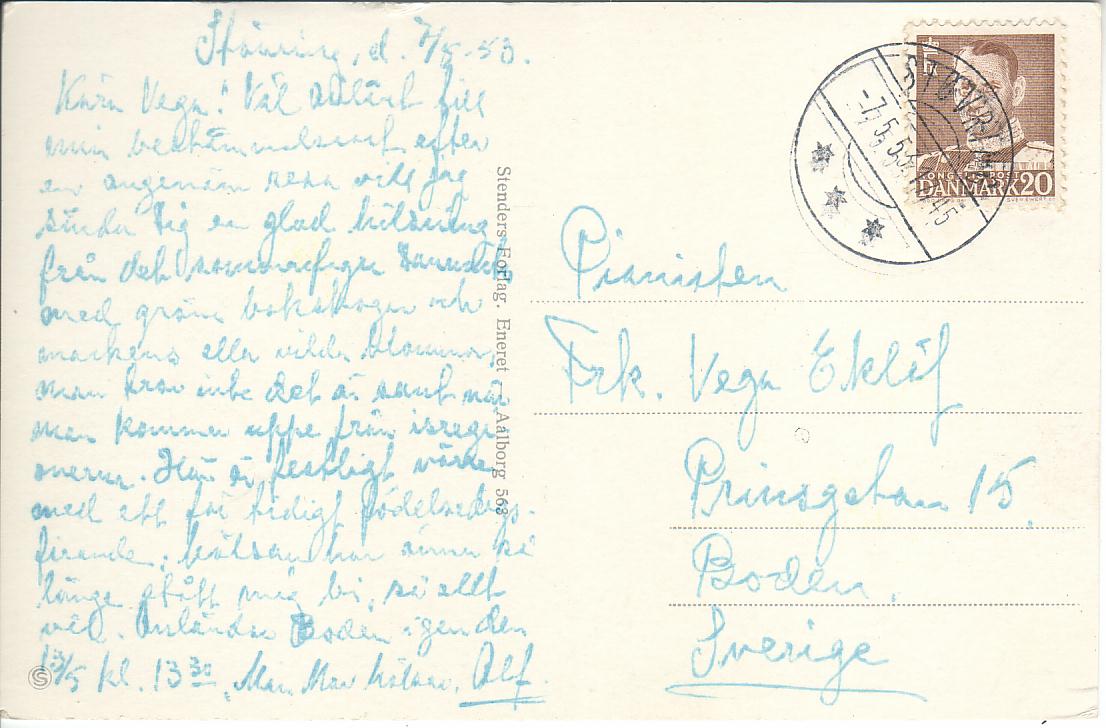 d. 7/5-53.
Kära Vega! Väl anlänt till
min bestämmelseort efter
en angenäm resa vill jag
sända Dig en glad hälsning
från det sommarfagra Danmark
med gröna bokskogar och
markens alla vilda blommor,
man tror inte det är sant när
man kommer uppe från isregi-
onerna. Här är festligt värre
med ett för tidigt födelsedags-
firande, hälsan har ännu så
länge stått mig bi, så allt
väl. Anländer Boden igen den
13/5 kl. 13 30, Hälsar, Alf.
Stenders Forlag. Eneret Aalborg 563
S
STØVRING
-7.5.53
KONGELIG POST
DANMARK 20
Pianisten
Frk. Vega Eklöf
Prinsgatan 15
Boden.
Sverige